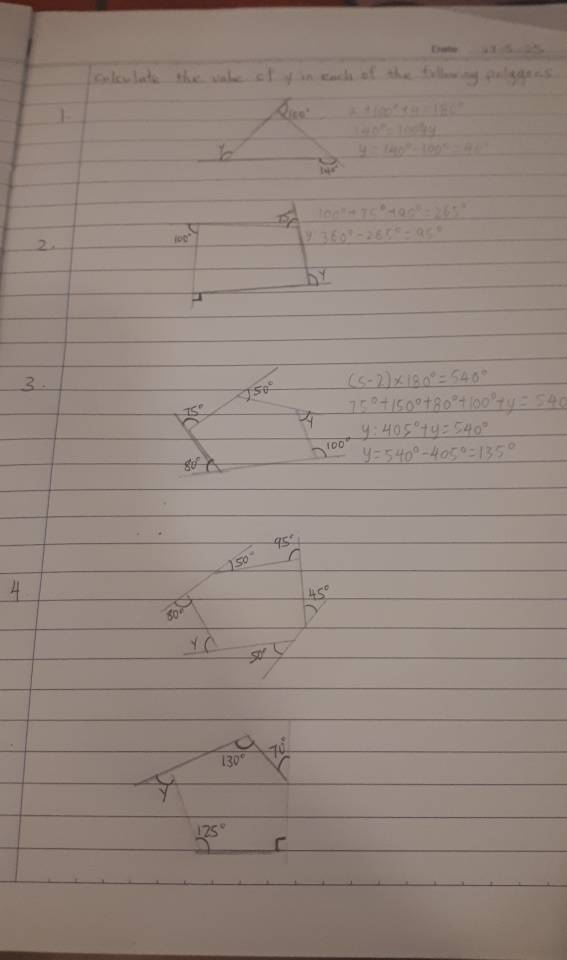 Date 27-5-25
Calculate the value of y in each of the following polygons
1.
100°
y
140°
x+100°+y=180°
140°=100°+y
y=140°-100°=40°
2.
100°
75°
y
100°+75°+90°=265°
y: 360°-265°=95°
3.
75°
50°
y
80°
100°
(5-2)×180°=540°
75°+150°+80°+100°+y=540
y: 405°+y=540°
y=540°-405°=135°
4
95°
50°
80°
45°
y
50°
130°
70°
y
125°